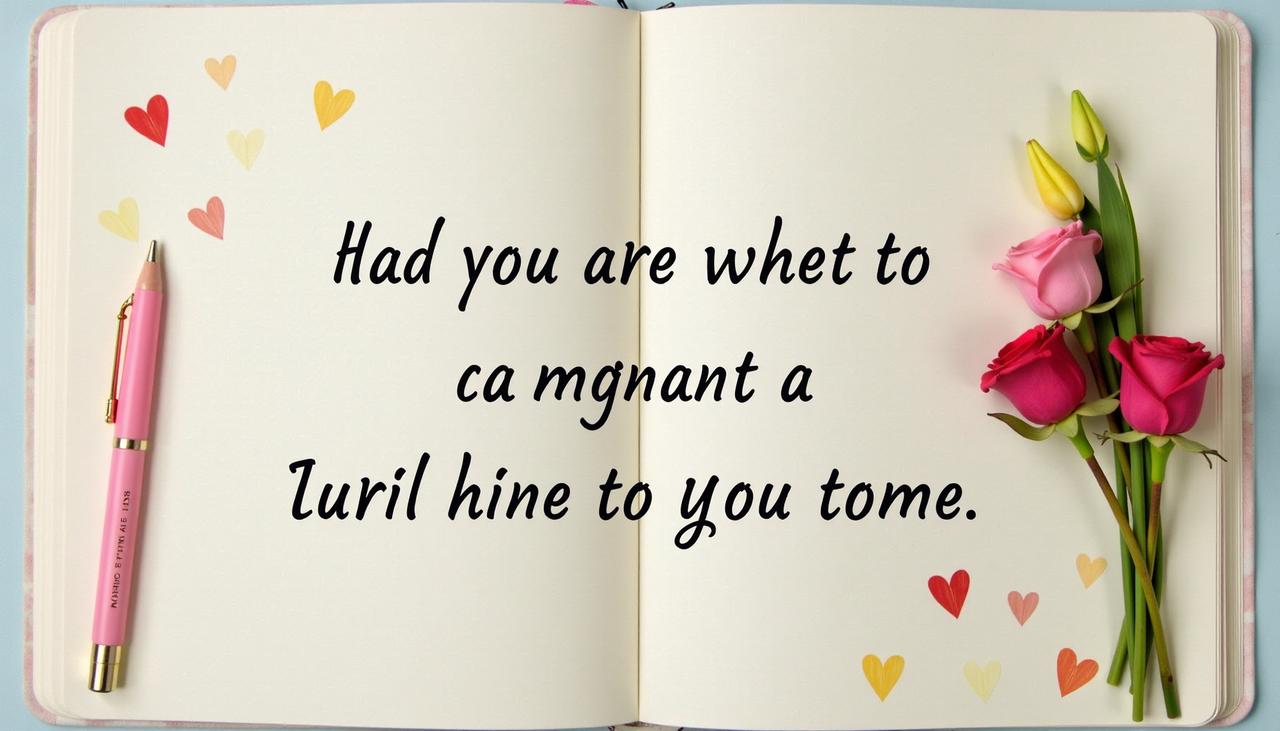 Had you are whet to
ca mgnant a
Iuril hine to you tome.